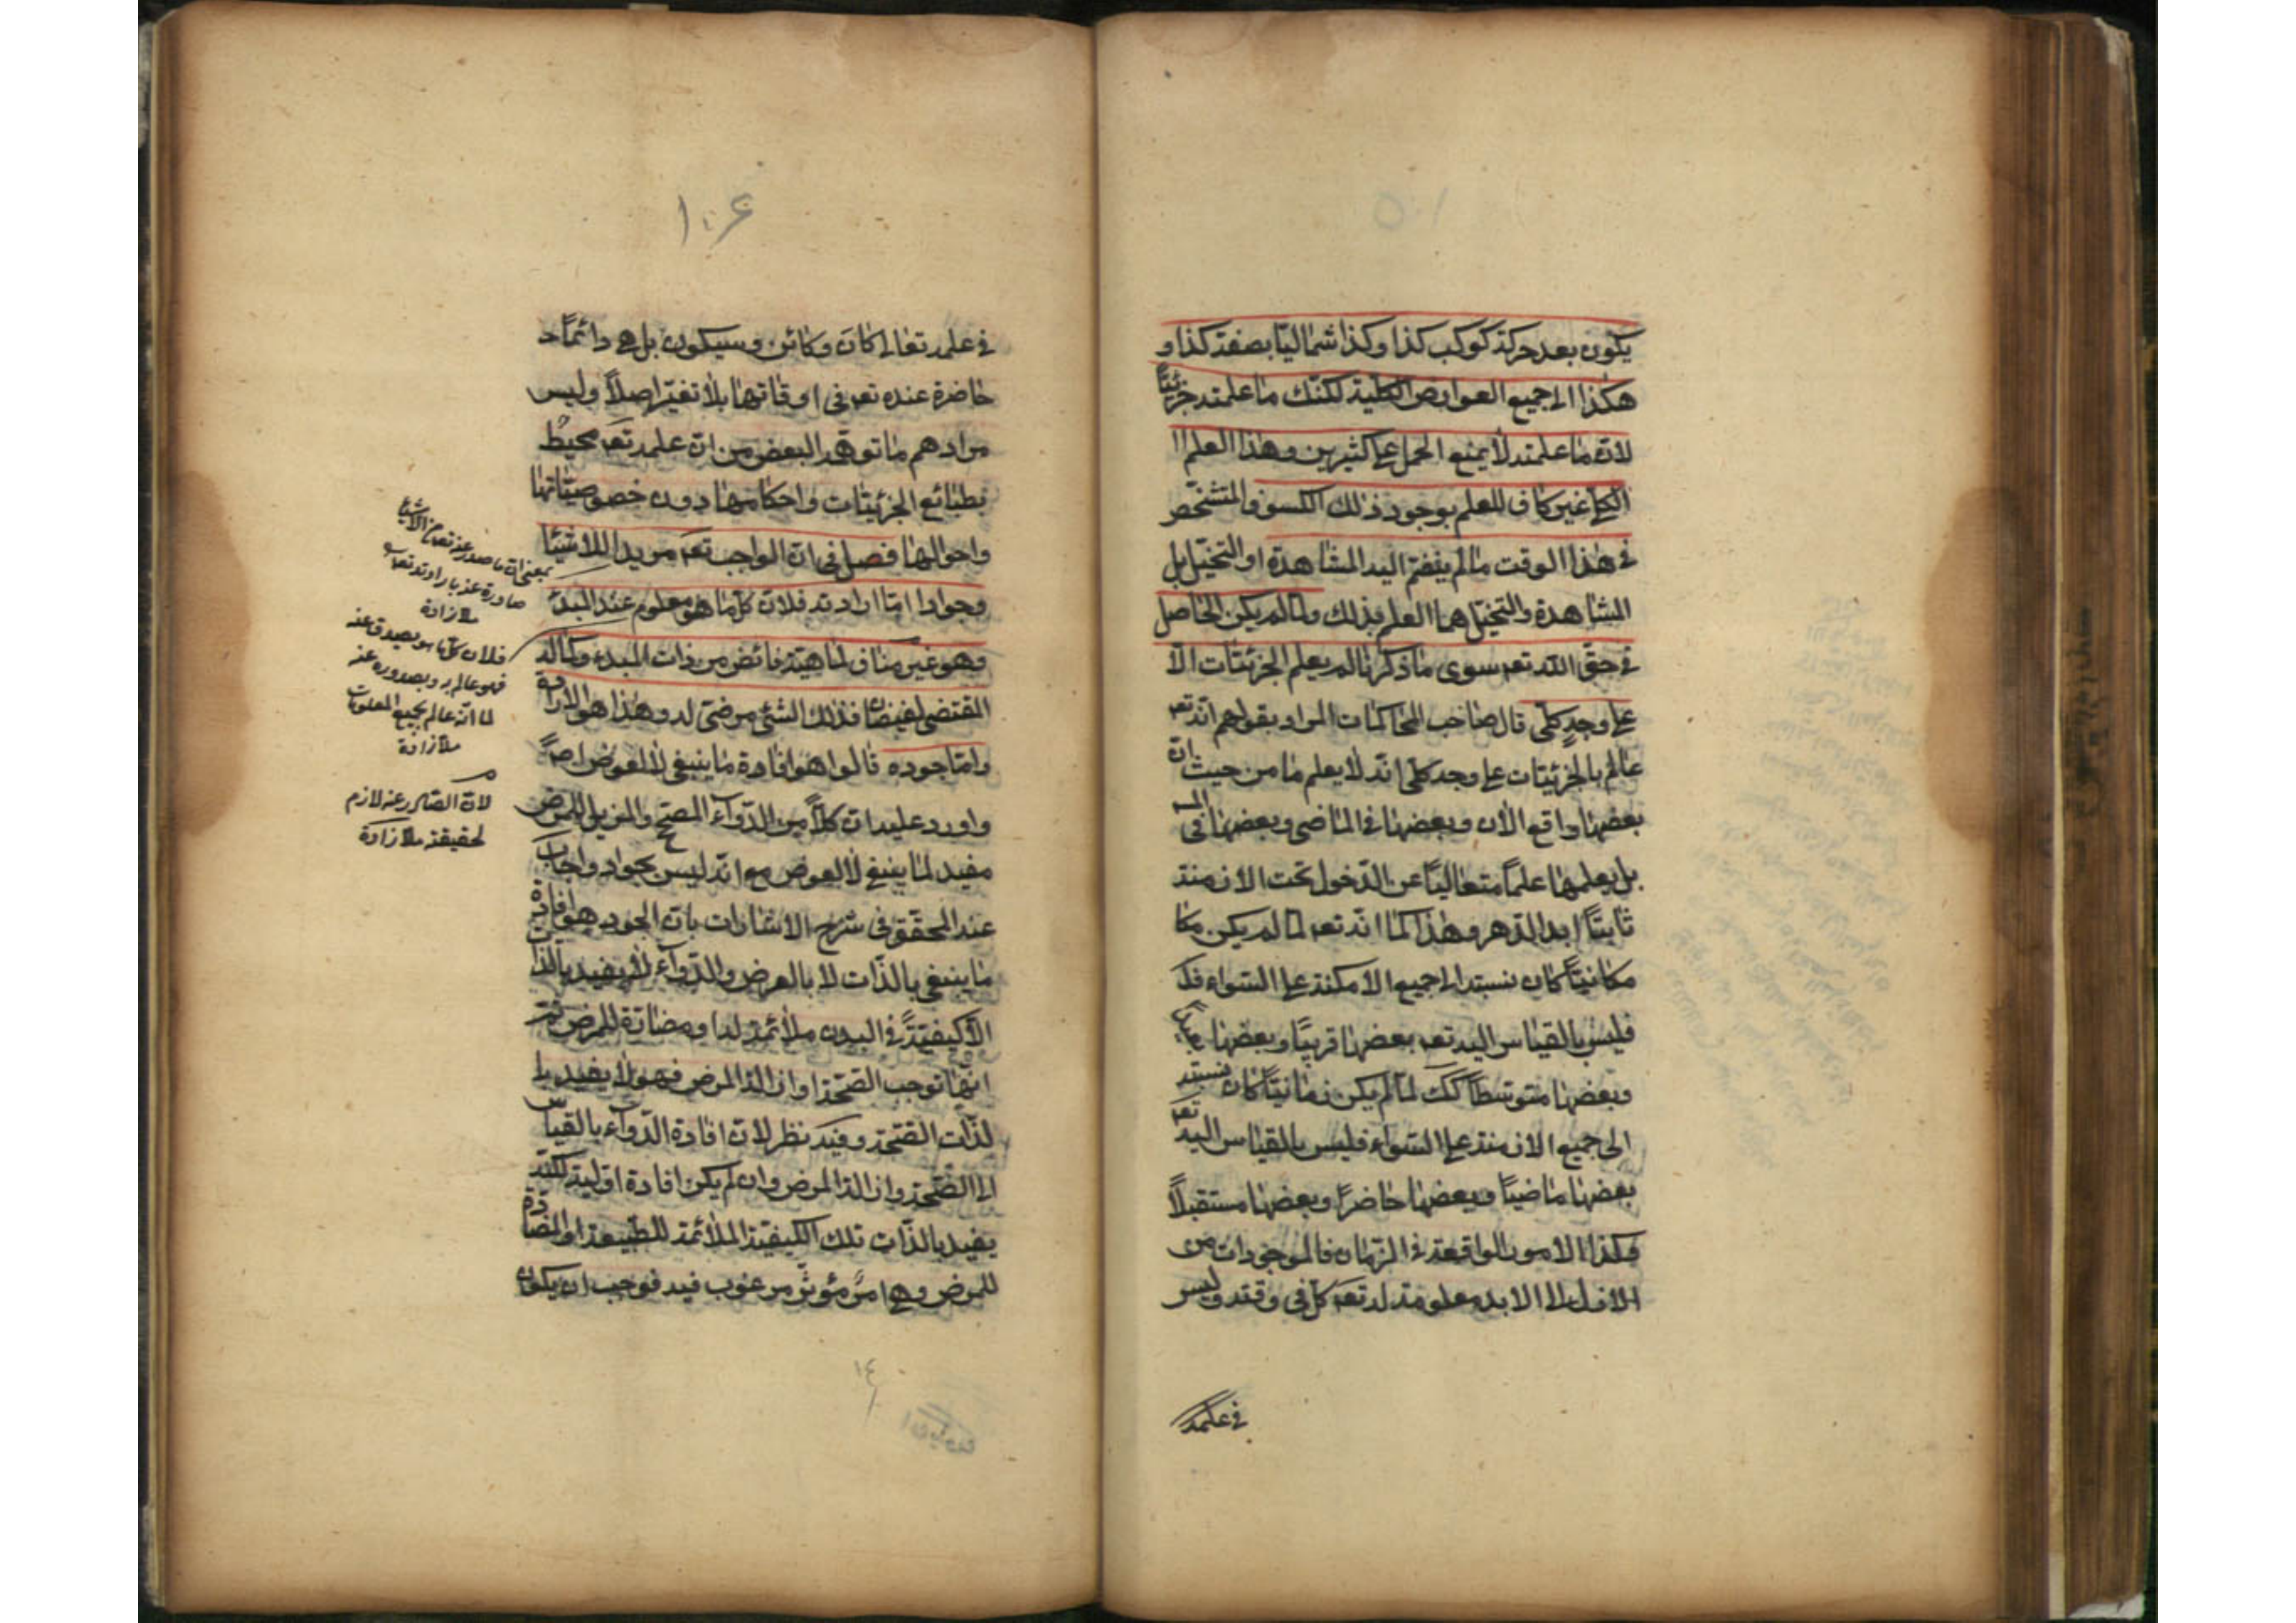 يكون بعد حركة كوكب كذا وكذا شماليّا بصفة كذا و
هكذا الى جميع العوارض الكلية لكنّك ما علمته جزئيّاً
لانّ ما علمته لا يمنع الحمل على كثيرين وهذا العلم
الكلّى غير كاف للعلم بوجود ذلك الكسوف المتشخّص
فى هذا الوقت ما لم ينضمّ اليه المشاهدة او التخيّل بل
المشاهدة والتخيّل هما العلم بذلك ولمّا لم يكن الحاصل
فى حقّ اللّه تعه سوى ما ذكرنا لم يعلم الجزئيّات الّا
على وجهٍ كلّى قال صاحب المحاكمات المراد بقولهم انّه تعه
عالم بالجزئيّات على وجه كلّى انّه لا يعلمها من حيث انّ
بعضها واقع الآن وبعضها فى الماضى وبعضها فى المـ
بل يعلمها علماً متعالياً عن الدّخول تحت الازمنة
ثابتاً ابد الدّهر وهذا كما انّه تعه لمّا لم يكن مكا
مكانيّاً كان نسبته الى جميع الامكنة على السّواء فكـ
فليس بالقياس اليه تعه بعضها قريبًا وبعضها بعيدا
وبعضها متوسّطا كك لمّا لم يكن زمانيّاً كان نسبته
الى جميع الازمنة على السّواء فليس بالقياس اليه تعه
بعضها ماضيًا وبعضها حاضرًا وبعضها مستقبلًا
فكذا الامور الواقعة فى الزّمان فالموجودات من
الازل الى الابد معلومة له تعه كلّ فى وقته وليس
فى علمه
١٠۶
فى علمه تعالى كان وكائن وسيكون بل هى دائمًا
حاضرة عنده تعه فى اوقاتها بلا تغيّر اصلًا وليس
مرادهم ما توهّمه البعض من انّ علمه تعه محيطٌ
بطبائع الجزئيّات واحكامها دون خصوصيّاتها
واحوالها فصل فى انّ الواجب تعه مريد للاشيا
وجواد امّا ارادته فلانّ كلّ ما هو معلوم عند المبدء
وهو غير مناف لماهيّته فائض من ذات المبدء وكماله
المقتضى لفيضانه فذلك الشئ مرضىّ له وهذا هو الارادة
وامّا جوده قالوا هو افادة ما ينبغى لا لعوض اصلًا
واورد عليه انّ كلّاً من الدّوآء المصحّ والمزيل للمرض
مفيد لما ينبغى لا لعوض مع انّه ليس بجواد واجاب
عنه المحقّق فى شرح الاشارات بانّ الجود هو افادة
ما ينبغى بالذّات لا بالعرض والدّوآء لا يفيد بالذات
الّا كيفيّةً فى البدن ملائمة له او مضادّة للمرض ثمّ
انّها توجب الصّحّة او ازالة المرض فهو لا يفيد با
لذّات الصّحّة وفيه نظر لانّ افادة الدّوآء بالقياس
الى الصّحّة وازالة المرض وان لم يكن افادة اوّلية لكنّه
يفيد بالذّات تلك الكيفيّة الملائمة للطبيعة او المضادّة
للمرض وهى امرٌ مؤثّر مرغوب فيه فوجب ان يكون
بمعنى انّ ما صدر عنه تعه من الاشياء
صادرة عنه بارادته تعه
ملا زاده
فلانّ كلّ ما هو يصدق عنه
فهو عالم به وبصدوره عنه
لما انّه عالم بجميع المعلومات
ملا زاده
لانّ الصّادر عنه لازم
لحقيقته ملا زاده
١٤